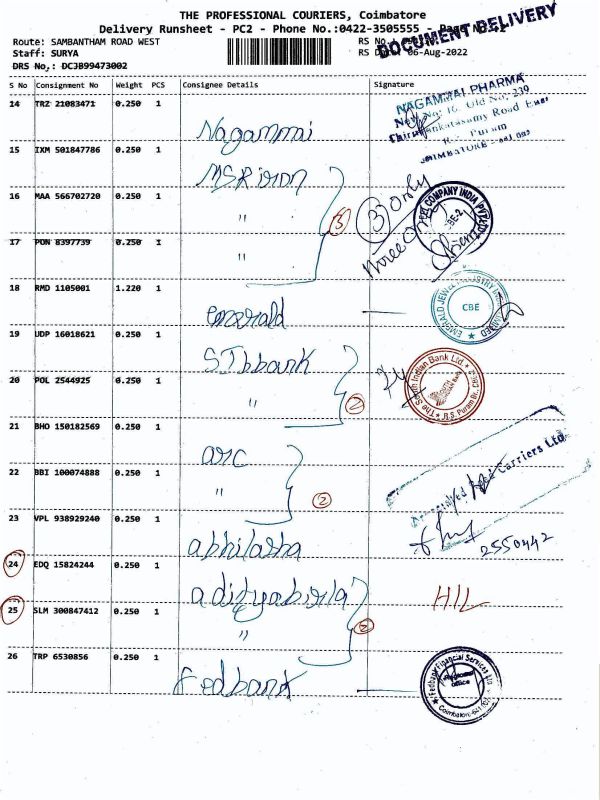 THE PROFESSIONAL COURIERS, Coimbatore
Delivery Runsheet - PC2 - Phone No.:0422-3505555 -
DOCUMENT DELIVERY
Route: SAMBANTHAM ROAD WEST
RS No.
Staff: SURYA
RS D 06-Aug-2022
DRS No.: DC3B99473002
S No Consignment No Weight PCS Consignee Details Signature
14 TRZ 21083471 0.250 1 Nagammai
NAGAMMAI PHARMA
New No: 16, Old No; 239
Thiruvenkatasamy Road East
R.S. Puram
COIMBATORE - 641 002
15 IXM 501847786 0.250 1
16 MAA 566702720 0.250 1 "
3 3 Only
COMPANY INDIA PVT LTD
CBE-2
17 PON 8397739 0.250 1 "
18 RMD 1105001 1.220 1 emerald
EMERALD JEWEL INDUSTRY INDIA LIMITED
CBE
19 UDP 16018621 0.250 1
20 POL 2544925 0.250 1 " 2
The South Indian Bank Ltd.
SOUTH INDIAN BANK
R.S. Puram Br.
21 BHO 150182569 0.250 1 arc
22 BBI 100074888 0.250 1 " 2
Carriers Ltd
23 VPL 938929240 0.250 1 abhilasha
2550442
24 EDQ 15824244 0.250 1 adityabirla
HIL
25 SLM 300847412 0.250 1 " 2
26 TRP 6530856 0.250 1 Fedbank
Fedbank Financial Services
Office
Coimbatore-641